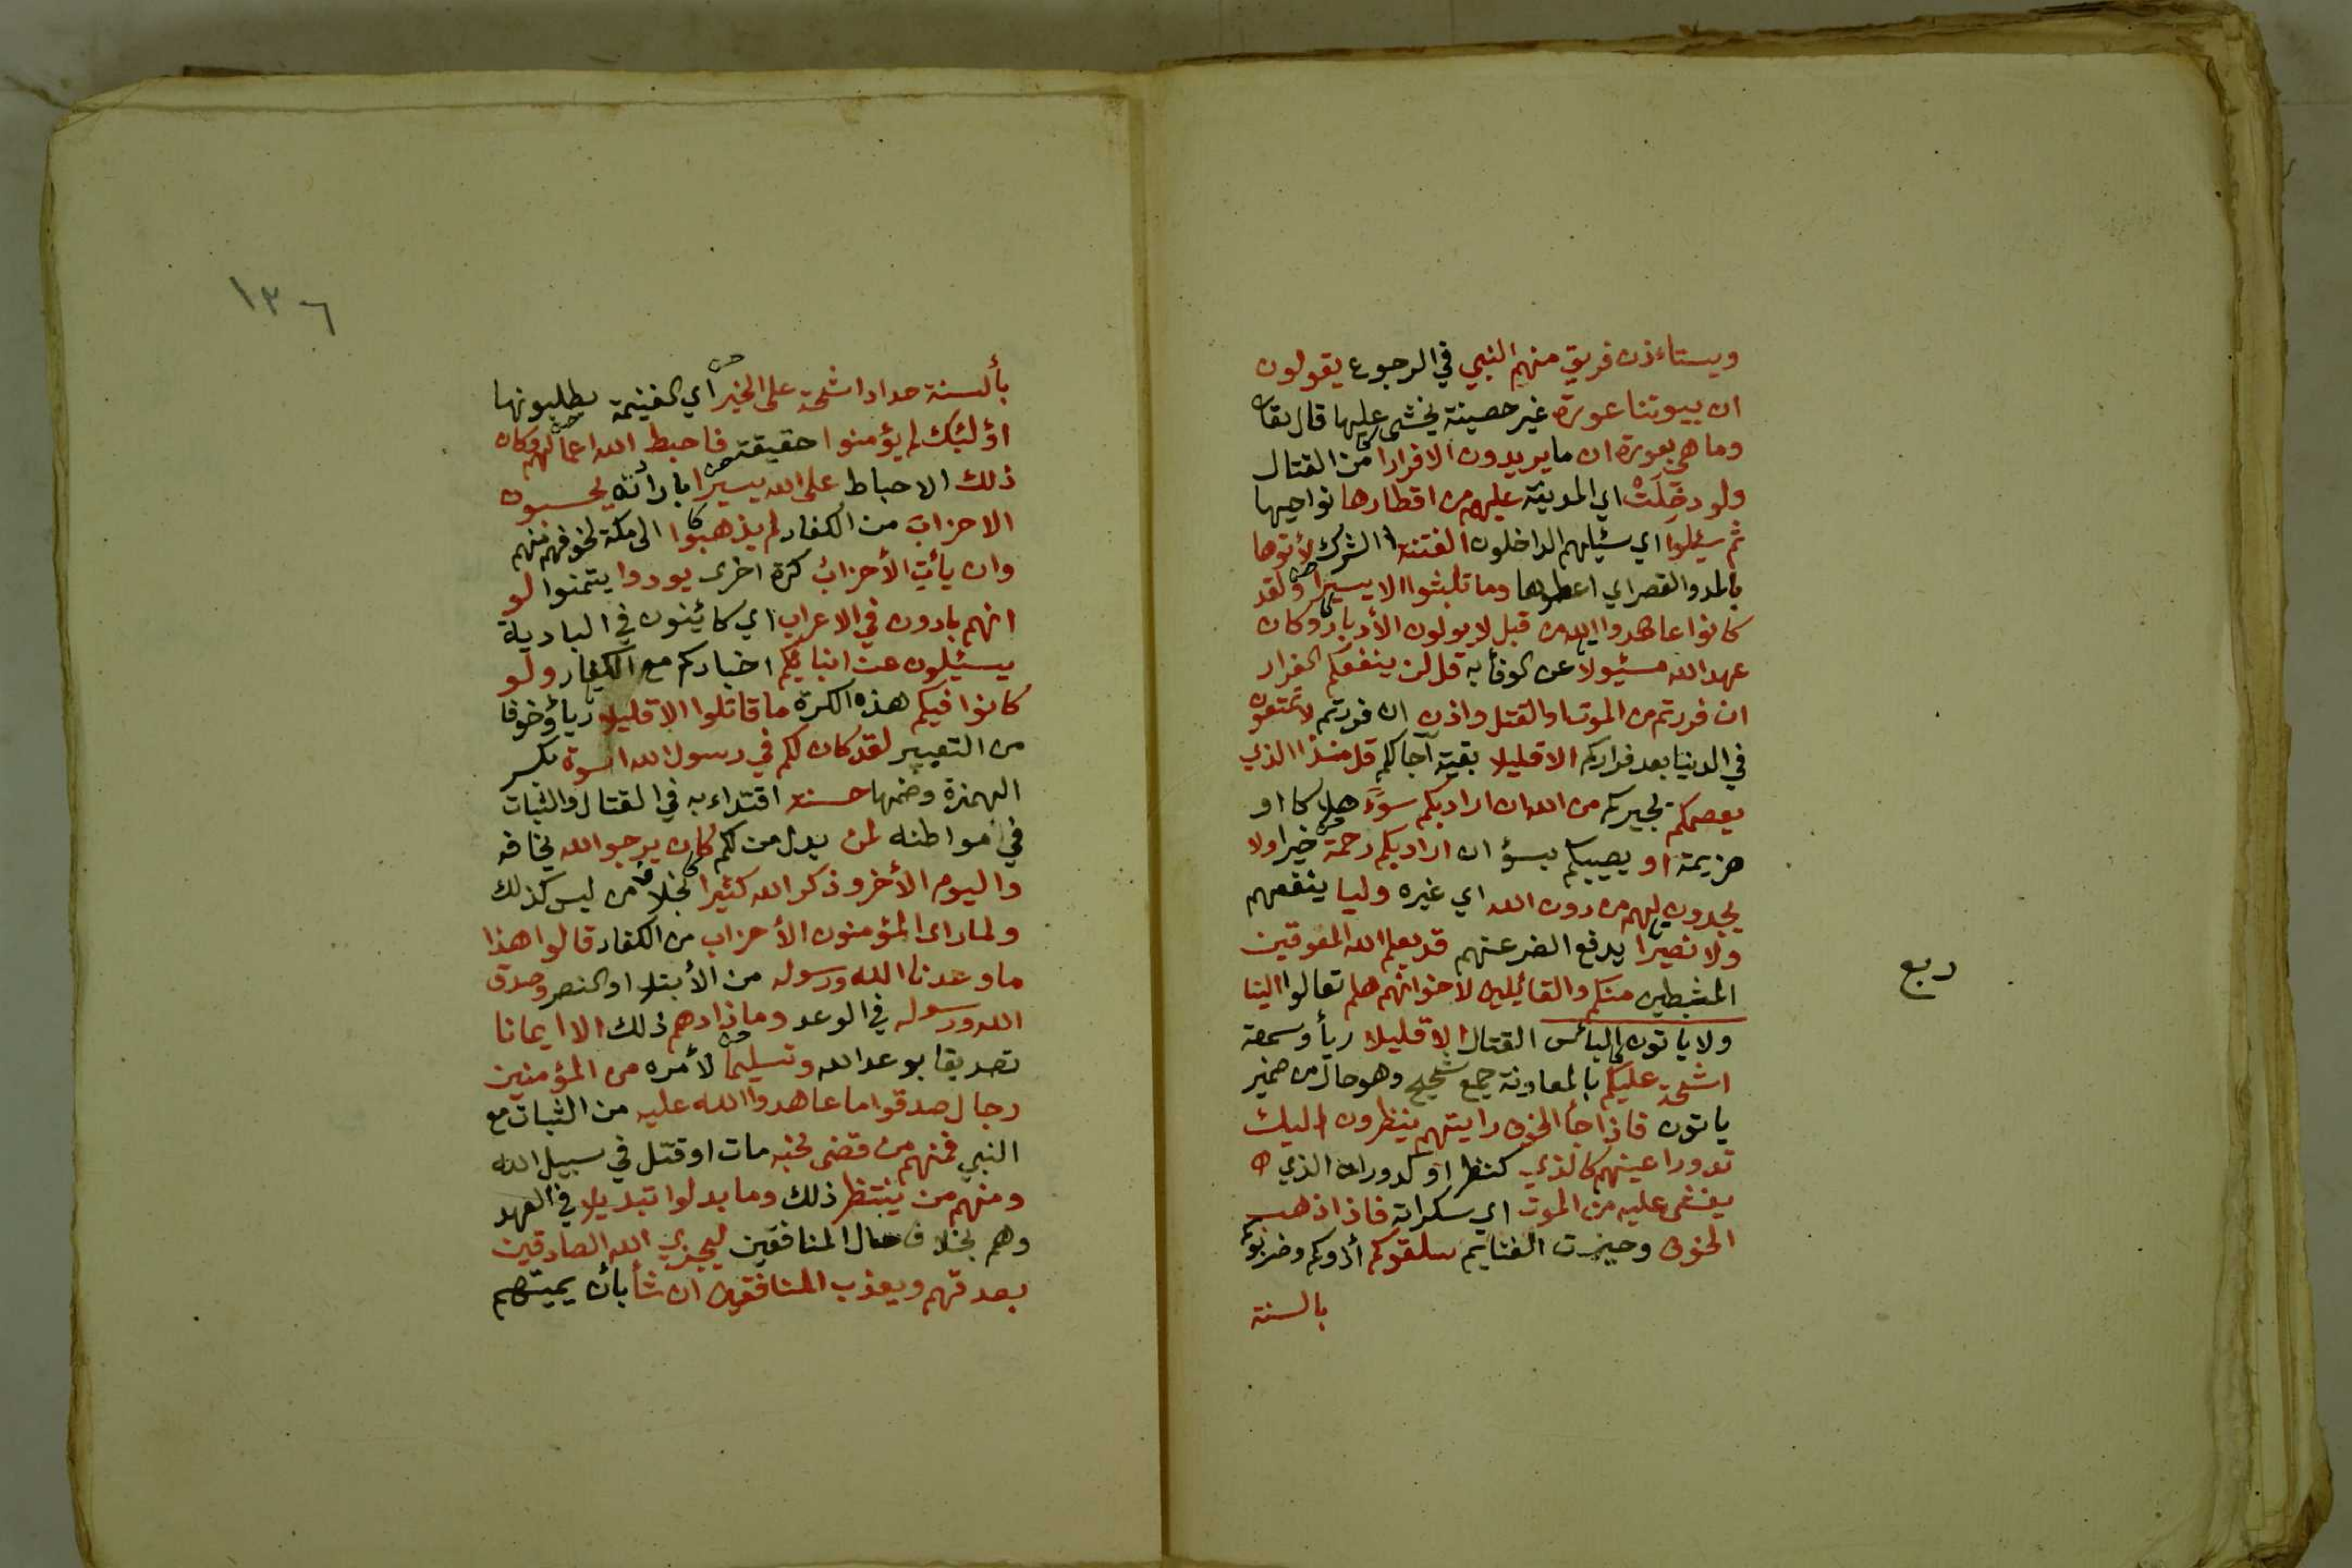 ويستاءذن فريق منهم النبي في الرجوع يقولون
ان بيوتنا عورة غير حصينة يخشى عليها قال تعا
وما هي بعورة ان ما يريدون الا فرارا من القتال
ولو دخلت اي المدينة عليهم من اقطارها نواحيها
ثم سئلوا اي سئيلهم الداخلون الفتنة الشرك لأتوها
بالمد والقصر اي اعطوها وما تلبثوا الا يسيرا ولقد
كانوا عاهدوا الله من قبل لا يولون الأدبار وكان
عهد الله مسئولا عن الوفأ به قل لن ينفعكم الفرار
ان فررتم من الموت او القتل واذن ان فررتم لا تمتعون
في الدنيا بعد فراركم الا قليلا بقية آجالكم قل منذا الذي
يعصمكم يجيركم من الله ان اراد بكم سوءً هلاكا او
هزيمة او يصيبكم بسؤ ان اراد بكم رحمة خيرا ولا
يجدون لهم من دون الله اي غيره وليا ينفعهم
ولا نصيرا يدفع الضر عنهم قد يعلم الله المعوقين
المثبطين منكم والقائيلين لاخوانهم هلم تعالوا الينا
ولا ياتون البائس القتال الا قليلا ريأ وسمعة
اشحة عليكم بالمعاونة جمع شحيح وهو حال من ضمير
ياتون فاذا جأ الخوف رايتهم ينظرون اليك
تدور اعينهم كالذي كنظر او كدوران الذي
يغشى عليه من الموت اي سكراته فاذا ذهب
الخوف وحيزت الغنايم سلقوكم أذوكم وضربوكم
بالسنة
ربع
١٣٦
بألسنة حداد اشحة على الخير اي الغنيمة يطلبونها
اؤلئك لم يؤمنوا حقيقة فاحبط الله اعمالهم وكان
ذلك الاحباط على الله يسيرا بارادته يحسبون
الاحزاب من الكفار لم يذهبوا الى مكة لخوفهم منهم
وان يأت الأحزاب كرة اخرى يودوا يتمنوا لو
انهم بادون في الاعراب اي كائينون في البادية
يسئلون عن انبائكم اخباركم مع الكفار ولو
كانوا فيكم هذه الكرة ما قاتلوا الا قليلا رياً وخوفا
من التعيير لقد كان لكم في رسول الله اسوة بكسر
الهمزة وضمها حسنة اقتداء به في القتال والثبات
في مواطنه لمن بدل من لكم كان يرجوا الله يخافه
واليوم الأخر وذكر الله كثيرا بخلاف من ليس كذلك
ولما راى المؤمنون الأحزاب من الكفار قالوا هذا
ما وعدنا الله ورسوله من الأبتلا والنصر وصدق
الله ورسوله في الوعد وما زادهم ذلك الا ايمانا
تصديقا بوعد الله وتسليما لأمره من المؤمنين
رجال صدقوا ما عاهدوا الله عليه من الثبات مع
النبي فمنهم من قضى نحبه مات او قتل في سبيل الله
ومنهم من ينتظر ذلك وما بدلوا تبديلا في العهد
وهم بخلاف حال المنافقين ليجزي الله الصادقين
بصدقهم ويعذب المنافقين ان شأ بأن يميتهم